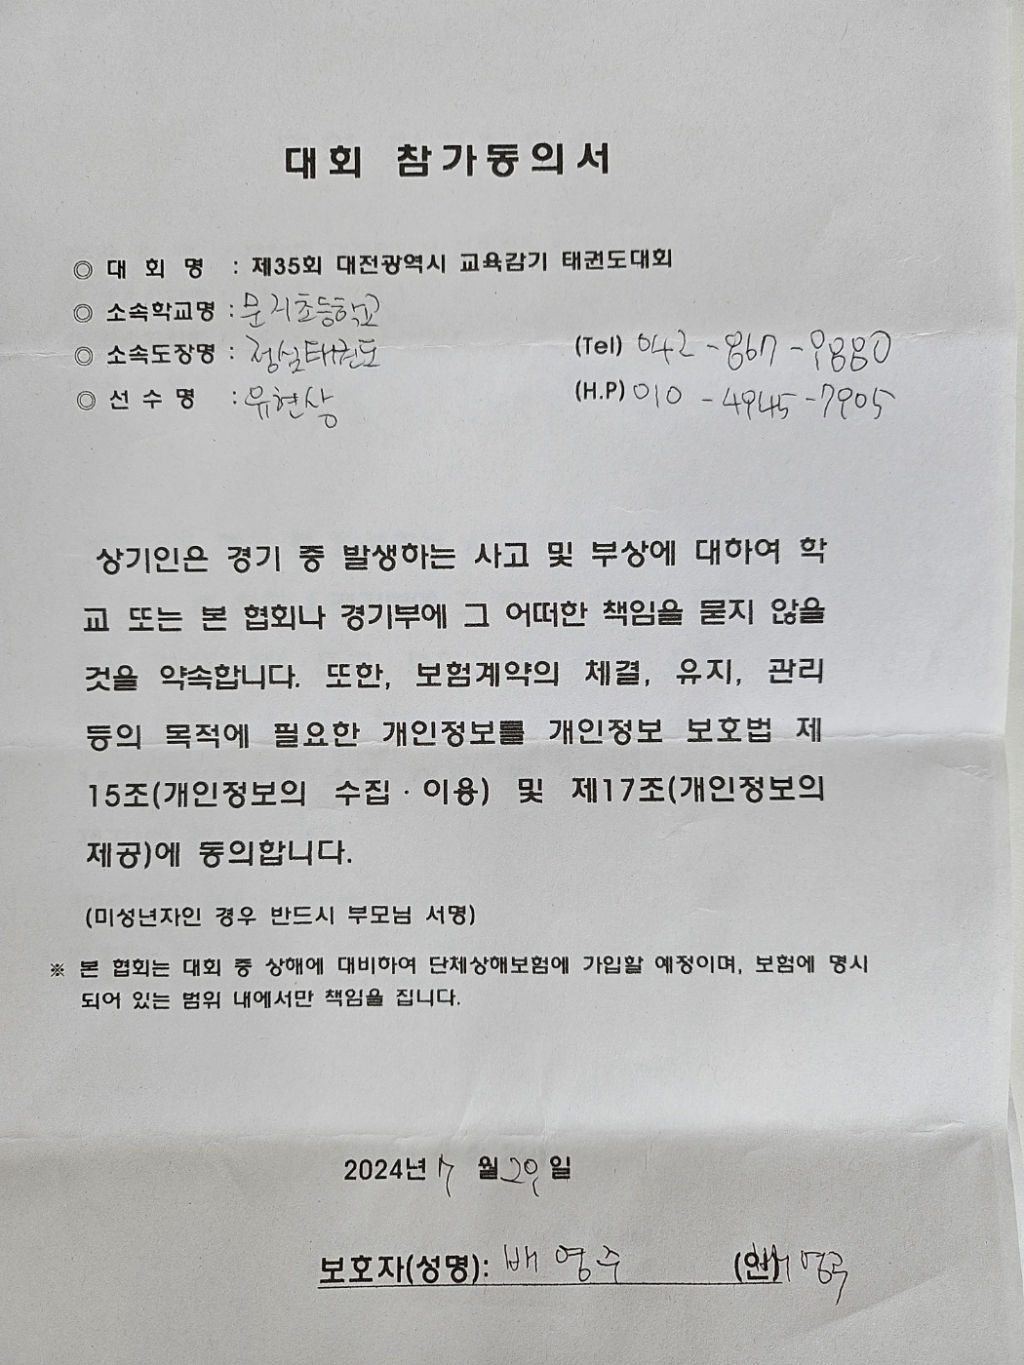 대회 참가동의서
◎ 대 회 명 : 제35회 대전광역시 교육감기 태권도대회
◎ 소속학교명 : 문지초등학교
◎ 소속도장명 : 정심태권도 (Tel) 042-867-9880
◎ 선 수 명 : 유현상 (H.P) 010-4945-7905
상기인은 경기 중 발생하는 사고 및 부상에 대하여 학
교 또는 본 협회나 경기부에 그 어떠한 책임을 묻지 않을
것을 약속합니다. 또한, 보험계약의 체결, 유지, 관리
등의 목적에 필요한 개인정보를 개인정보 보호법 제
15조(개인정보의 수집·이용) 및 제17조(개인정보의
제공)에 동의합니다.
(미성년자인 경우 반드시 부모님 서명)
※ 본 협회는 대회 중 상해에 대비하여 단체상해보험에 가입할 예정이며, 보험에 명시
되어 있는 범위 내에서만 책임을 집니다.
2024년 7 월 29 일
보호자(성명): 배영주 (인)